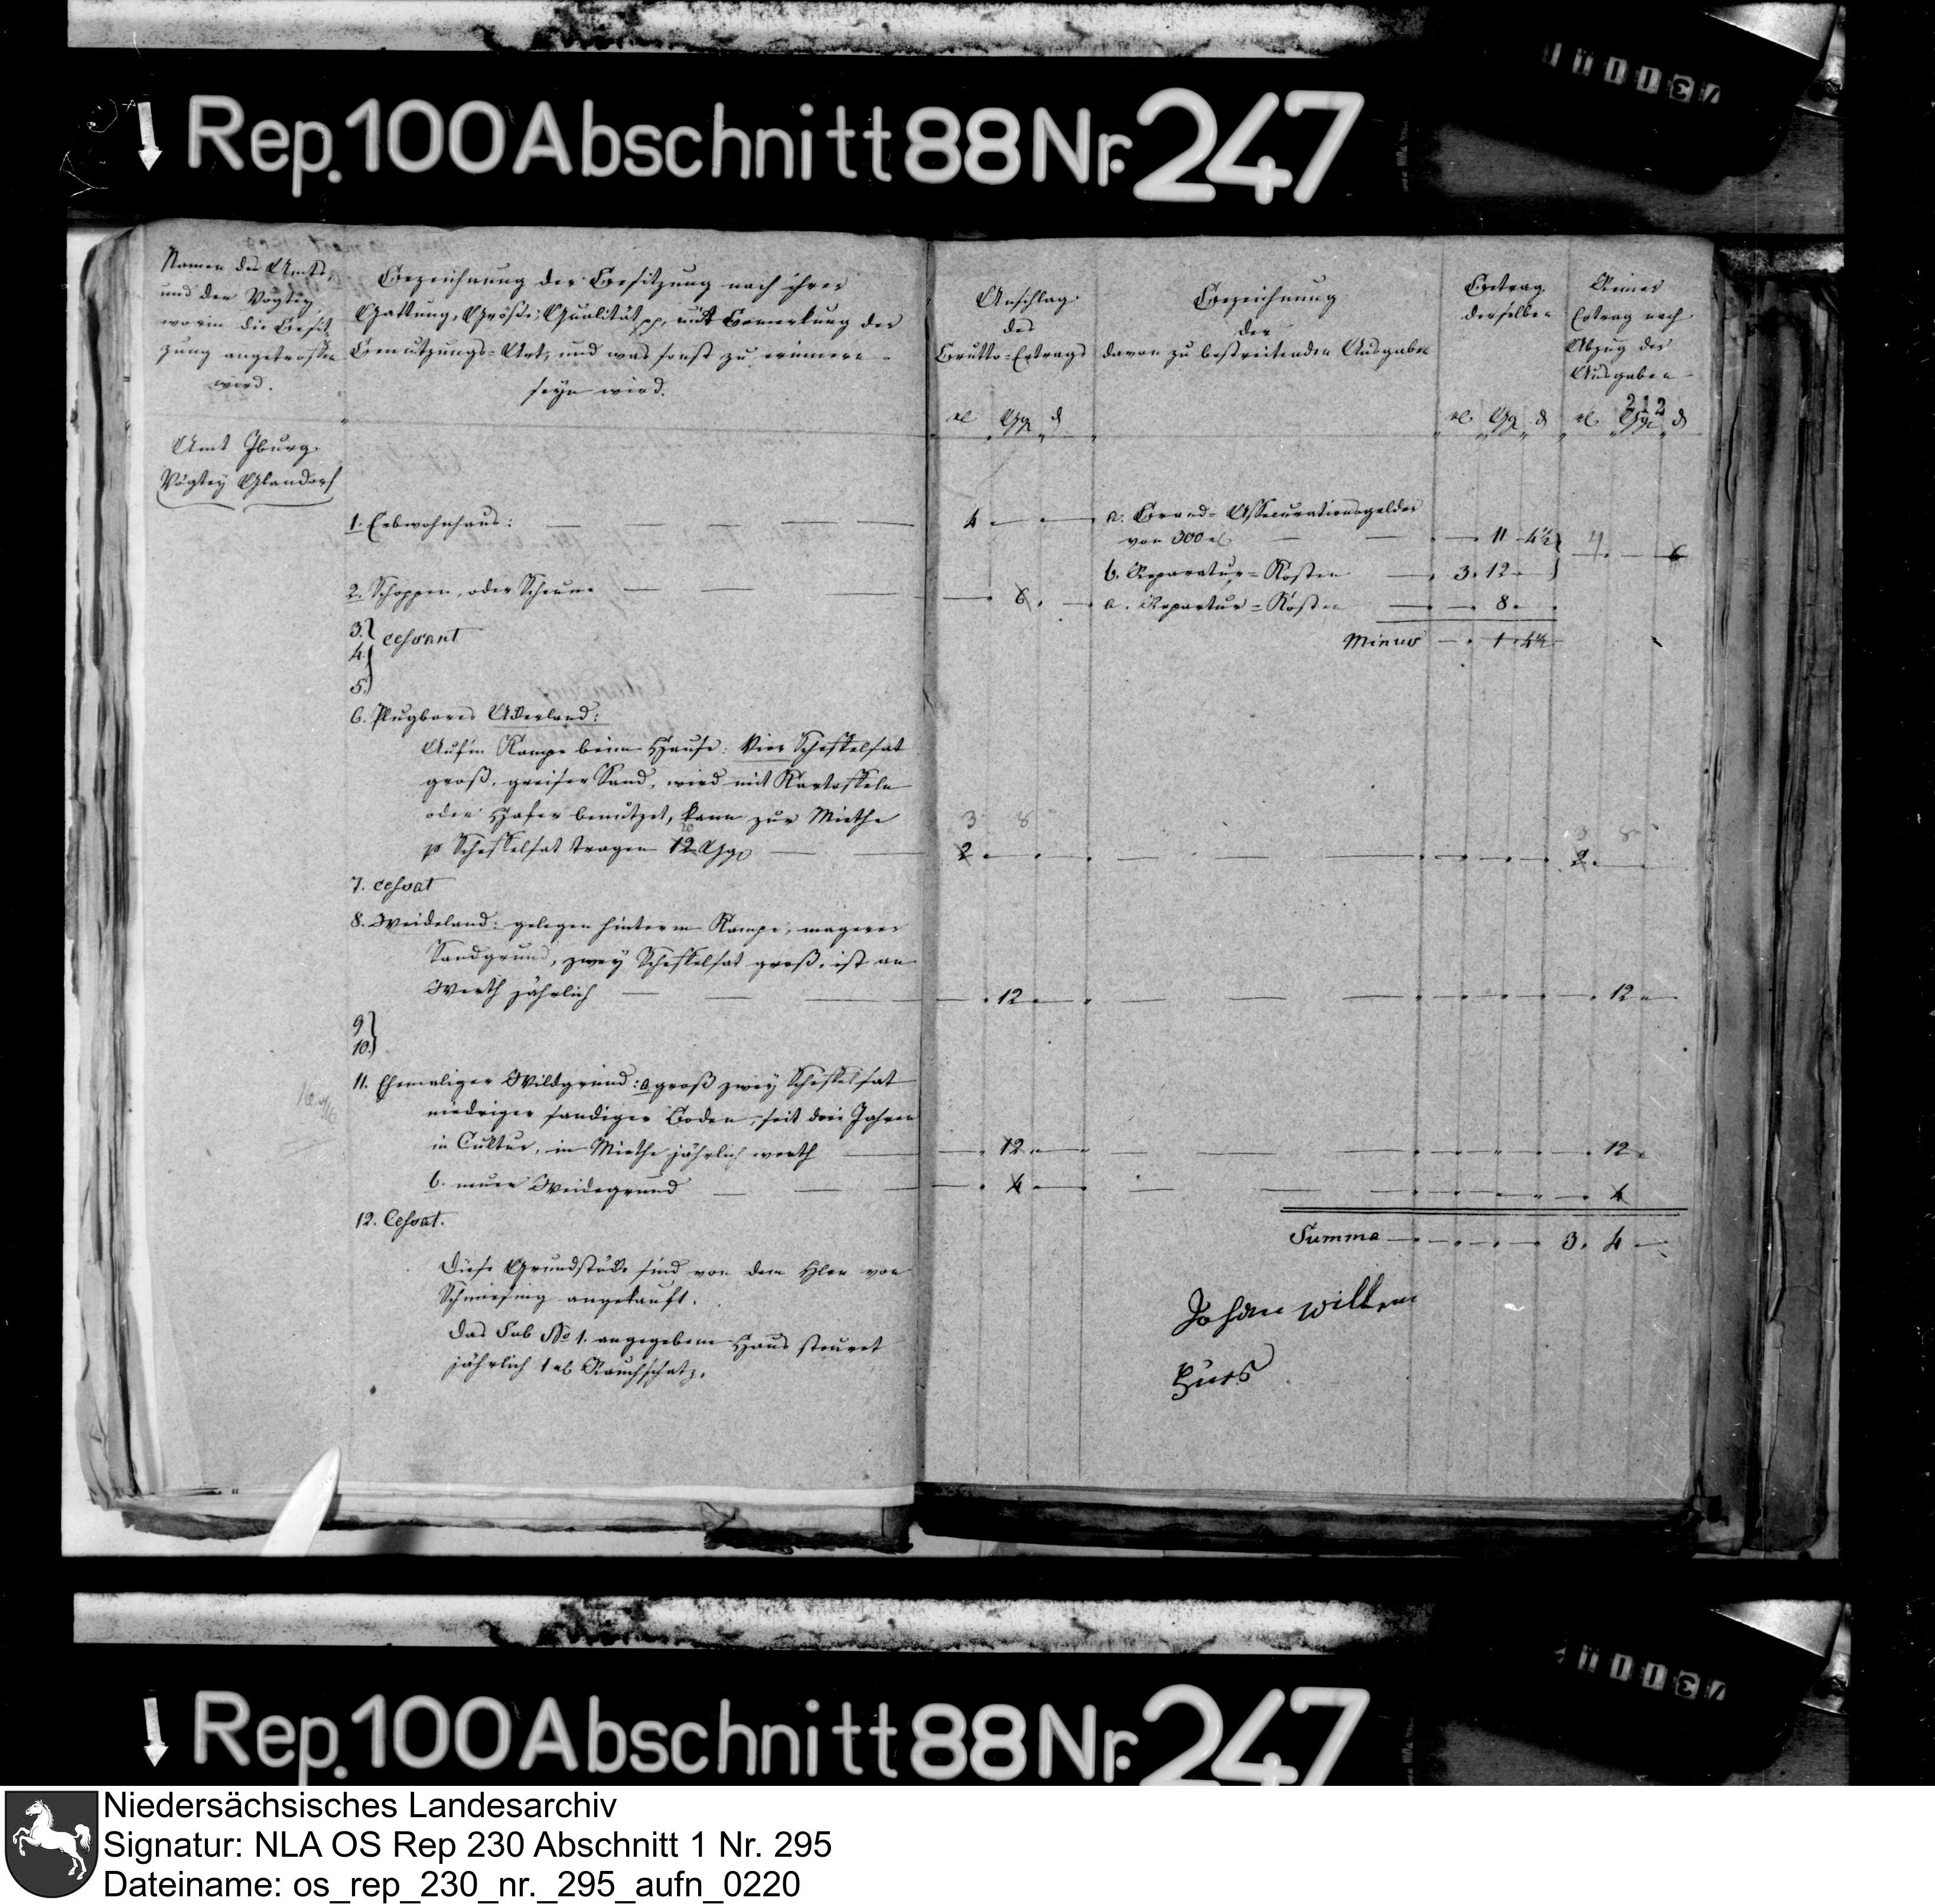 Rep. 100 Abschnitt 88 Nr. 247
Namen des Amts,
und der Vogtey,
worin die Besit-
zung angetroffen
wird.
Bezeichnung der Besitzung nach ihrer
Gattung, Größe, Qualität pp, mit Bemerkung der
Benutzungs-Art, und was sonst zu erinnern
seyn wird.
Anschlag
des
Brutto-Ertrags
Bezeichnung
der
davon zu bestreitenden Ausgaben
Betrag
derselben
Reiner
Ertrag nach
Abzug der
Ausgaben
212
rl Ggr d
rl Ggr d
rl Ggr d
Amt Iburg.
Vogtey Glandorf
1. Erbwohnhaus: 4
a. Brand-Assecurationsgelder
von 300 rl 11 4½
4 6
b. Reparatur-Kosten 3. 12
2. Schoppen, oder Scheune 6.
a. Reparatur-Kosten 8.
3.
4. cessant
5.
Minus 1. 4½
6. Plugbares Ackerland:
Auf'm Kampe beim Hause: Vier Scheffelsat
groß, greiser Sand, wird mit Kartoffeln
oder Hafer benutzet, kann zur Miethe
3 8 3 8
p Scheffelsat tragen 12 Ggr 2 2.
7. cessat
8. Weideland: gelegen hinterm Kampe, magerer
Sandgrund, zwey Scheffelsat groß, ist an
Werth jährlich 12 12
9
10.
11. Ehemaliger Wildgrund: a groß zwey Scheffelsat
niedriger sandiger Boden, seit drei Jahren
in Cultur, in Miethe jährlich werth 12 12
b. neuer Weidegrund 4 4
12. Cessat.
Summa 3. 4
Diese Grundstücke sind von dem Hlen von
Schmiesing angekauft.
Das Sub No 1. angegebene Haus steuret
jährlich 1 rl Rauchschatz.
Johan willem
Rep. 100 Abschnitt 88 Nr. 247
Niedersächsisches Landesarchiv
Signatur: NLA OS Rep 230 Abschnitt 1 Nr. 295
Dateiname: os_rep_230_nr._295_aufn_0220